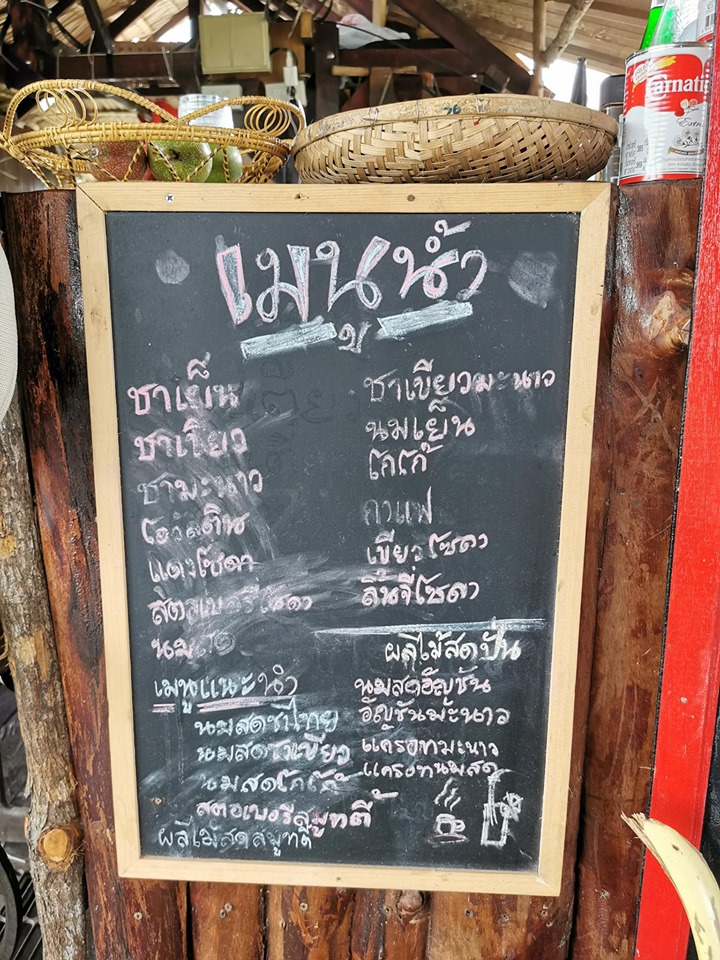 เมนูน้ำ
ชาเย็น
ชาเขียว
ชามะนาว
โอวัลติน
แดงโซดา
สตอเบอรี่โซดา
นม
ชาเขียวมะนาว
นมเย็น
โกโก้
กาแฟ
เขียวโซดา
ลิ้นจี่โซดา
เมนูแนะนำ
นมสดชาไทย
นมสดชาเขียว
นมสดโกโก้
สตอเบอรีสมูทตี้
ผลไม้สดสมูทตี
ผลไม้สดปั่น
นมสดอัญชัน
อัญชันมะนาว
แครอทมะนาว
แครอทนมสด
Carnati